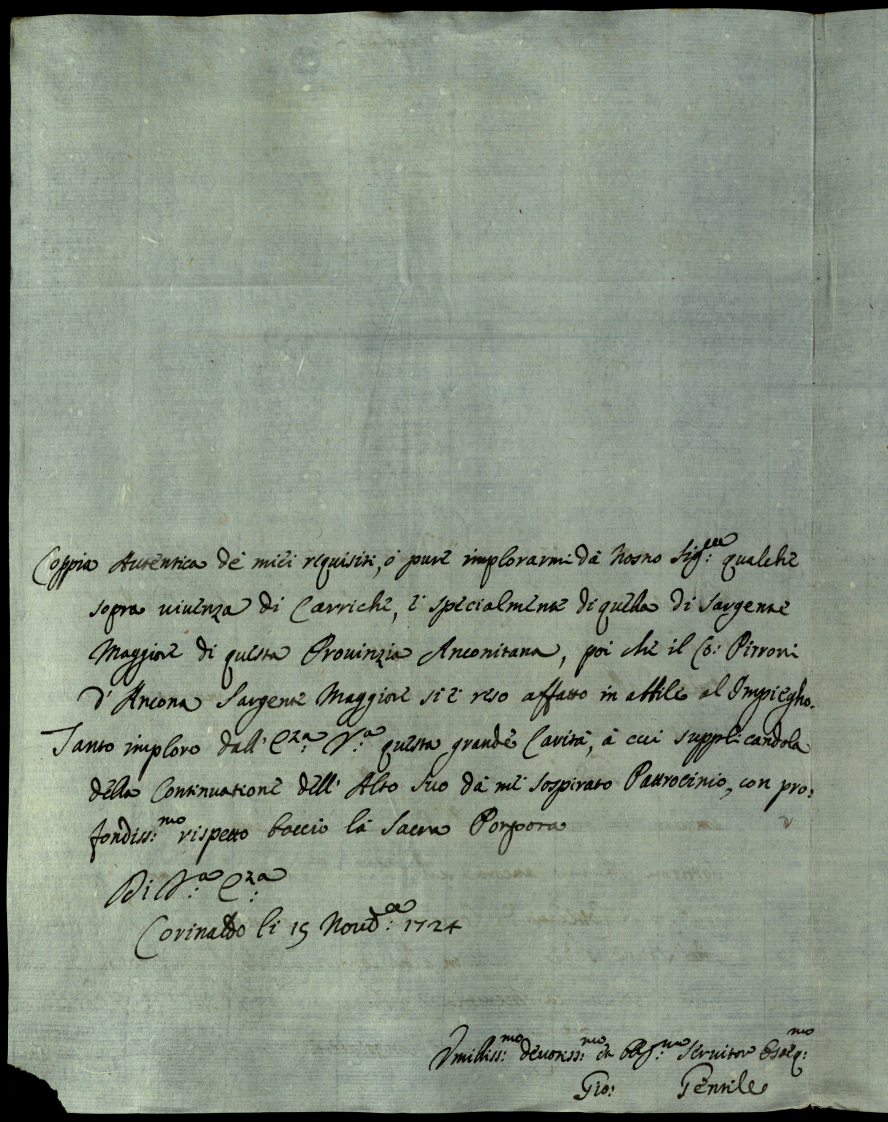 Coppia Autentica de miei requisiti, ò pure implorarmi dà Nostro Sig:re qualche
sopra uiuenza di Carriche, è specialmente di quella di Sargente
Maggiore di questa Prouinzia Anconitana, poi che il Co: Pirroni
d'Ancona Sargente Maggiore si è reso affatto in attile al Impiegho.
Tanto imploro dall' E:za V:a questa grande Carità, à cui supplicandola
della Continuatione dell' Alto suo dà me sospirato Patrocinio, con pro:
fondiss:mo rispetto baccio là Sacra Porpora
Di V:a E:za
Corinaldo li 15 Nou:e 1724
Vmiliss:mo deuotiss:mo et Obl:mo Seruitor Osseq:mo
Gio: Gentile